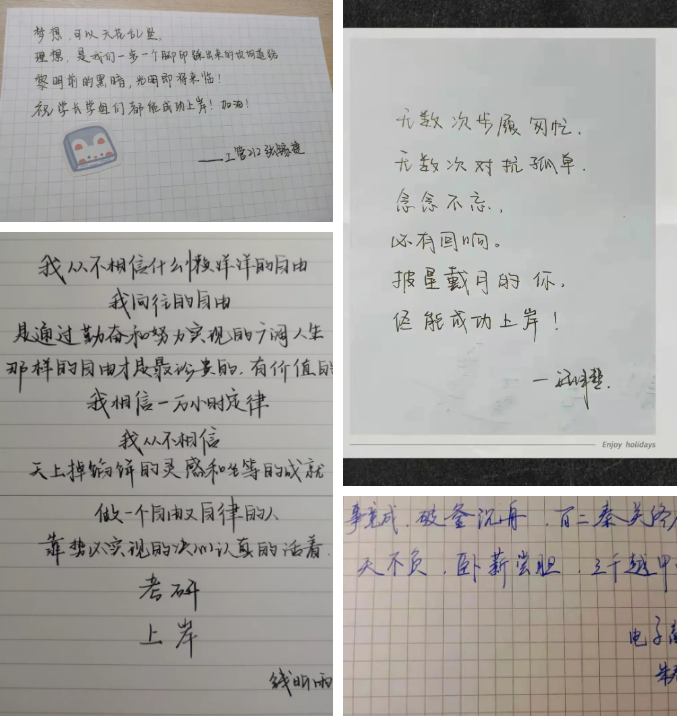 梦想,可以天花乱坠,
理想,是我们一步一个脚印踩出来的坎坷道路
黎明前的黑暗,光明即将来临!
祝学长学姐们都能成功上岸!加油!
——工管212
我从不相信什么懒洋洋的自由
我向往的自由
是通过勤奋和努力实现的广阔人生
那样的自由才是最珍贵的,有价值的
我相信一万小时定律
我从不相信
天上掉馅饼的灵感和坐等的成就
做一个自由又自律的人
靠势必实现的决心认真的活着
考研
上岸
无数次步履匆忙,
无数次对抗孤单.
念念不忘,
必有回响。
披星戴月的你,
定能成功上岸!
Enjoy holidays
事竟成,破釜沉舟,百二秦关终
天不负,卧薪尝胆,三千越甲
电子商